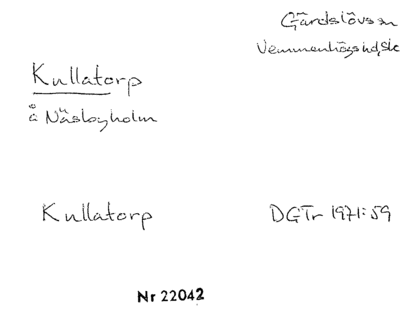 Gärdslövs sn
Vemmenhögs hd, Sk
Kullatorp
å Näsbyholm
Kullatorp
DGTr 1971:59
Nr 22042